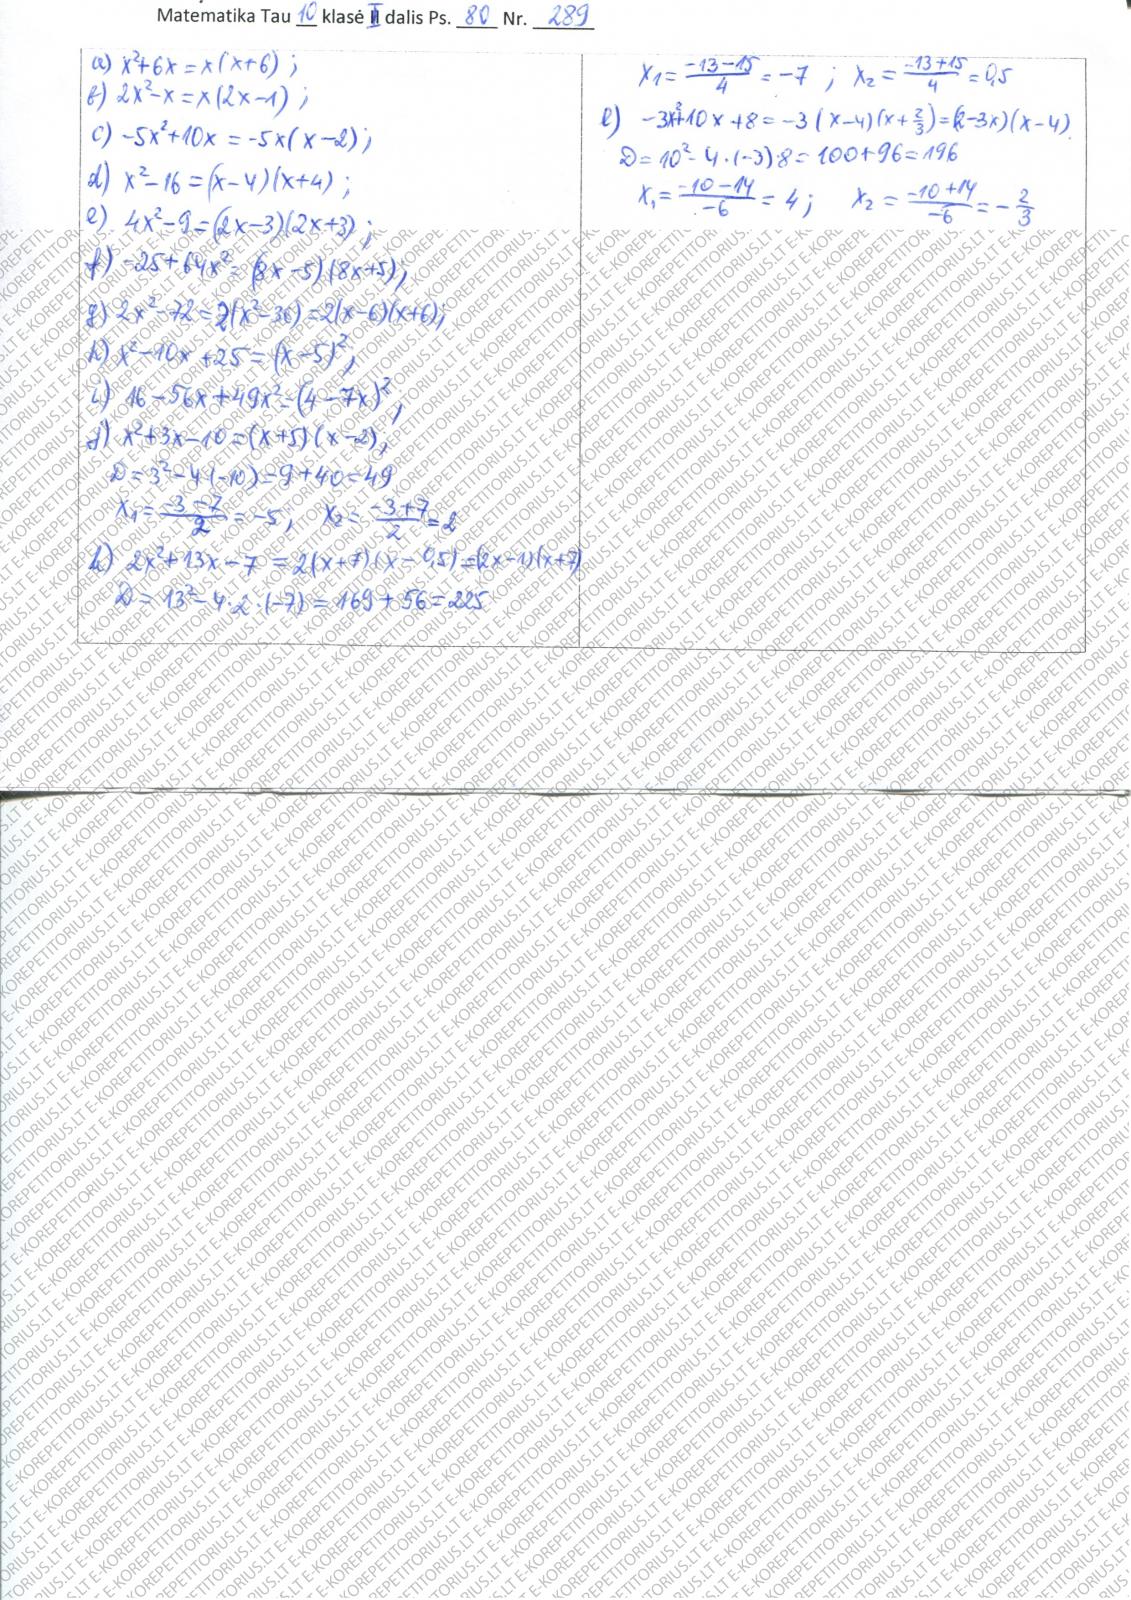 Matematika Tau 10 klasė II dalis Ps. 80 Nr. 289
a) x²+6x = x(x+6) ;
b) 2x²-x = x(2x-1) ;
c) -5x²+10x = -5x(x-2) ;
d) x²-16 = (x-4)(x+4) ;
e) 4x²-9 = (2x-3)(2x+3) ;
f) -25+64x² = (8x-5)(8x+5) ;
g) 2x²-72 = 2(x²-36) = 2(x-6)(x+6) ;
h) x²-10x+25 = (x-5)² ;
i) 16-56x+49x² = (4-7x)² ;
j) x²+3x-10 = (x+5)(x-2) ;
D = 3²-4·(-10) = 9+40 = 49
x₁ = (-3-7)/2 = -5 ; x₂ = (-3+7)/2 = 2
k) 2x²+13x-7 = 2(x+7)(x-0,5) = (2x-1)(x+7)
D = 13²-4·2·(-7) = 169+56 = 225
x₁ = (-13-15)/4 = -7 ; x₂ = (-13+15)/4 = 0,5
l) -3x²+10x+8 = -3(x-4)(x+2/3) = (-2-3x)(x-4)
D = 10²-4·(-3)·8 = 100+96 = 196
x₁ = (-10-14)/-6 = 4 ; x₂ = (-10+14)/-6 = -2/3
E-KOREPETITORIUS.LT